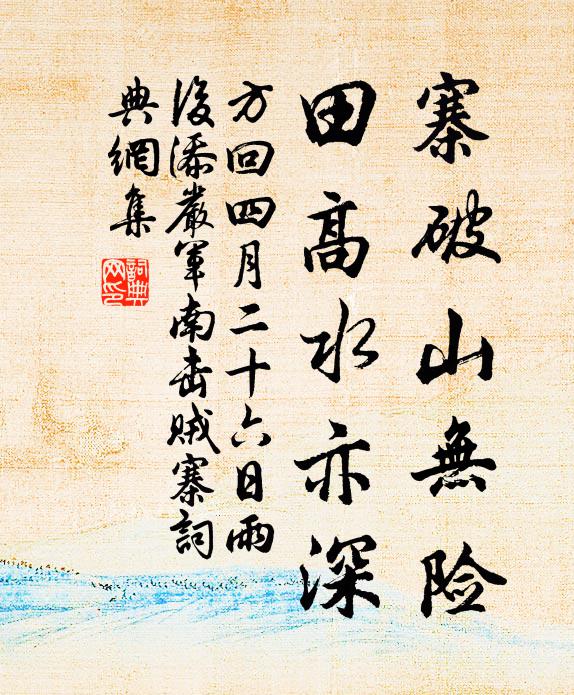 寨破山無险
田高水亦深
方回四月二十六日雨
後添嚴軍南击贼寨詞
典網集
詞典
网印